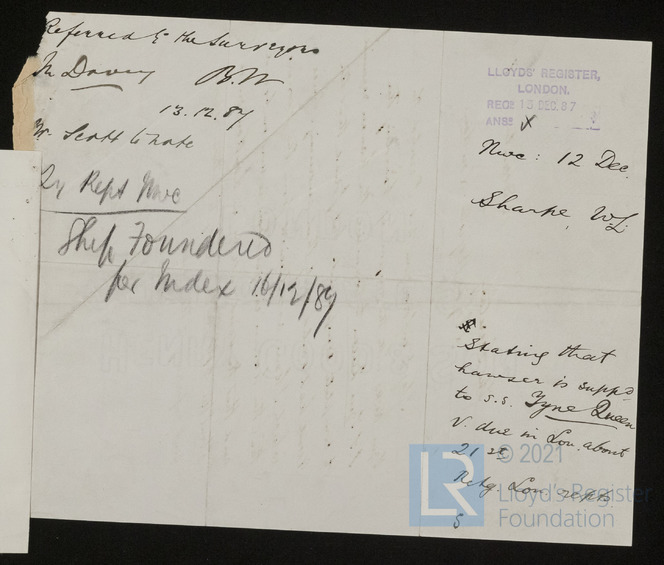 Referred to the Surveyors
Mr Davey B.W
13.12.87
Mr Scott to note
Qy Rept Nwc
Ship Foundered
per Index 16/12/87
LLOYDS' REGISTER,
LONDON.
RECD 13 DEC. 87
ANSD
Nwc: 12 Dec.
Sharpe, W.L.
Stating that
hawser is supp'd
to s.s. Tyne Queen
V. due in Lon. about
21st
Retg. Lon repts.
5
LR
© 2021
Lloyd's Register
Foundation